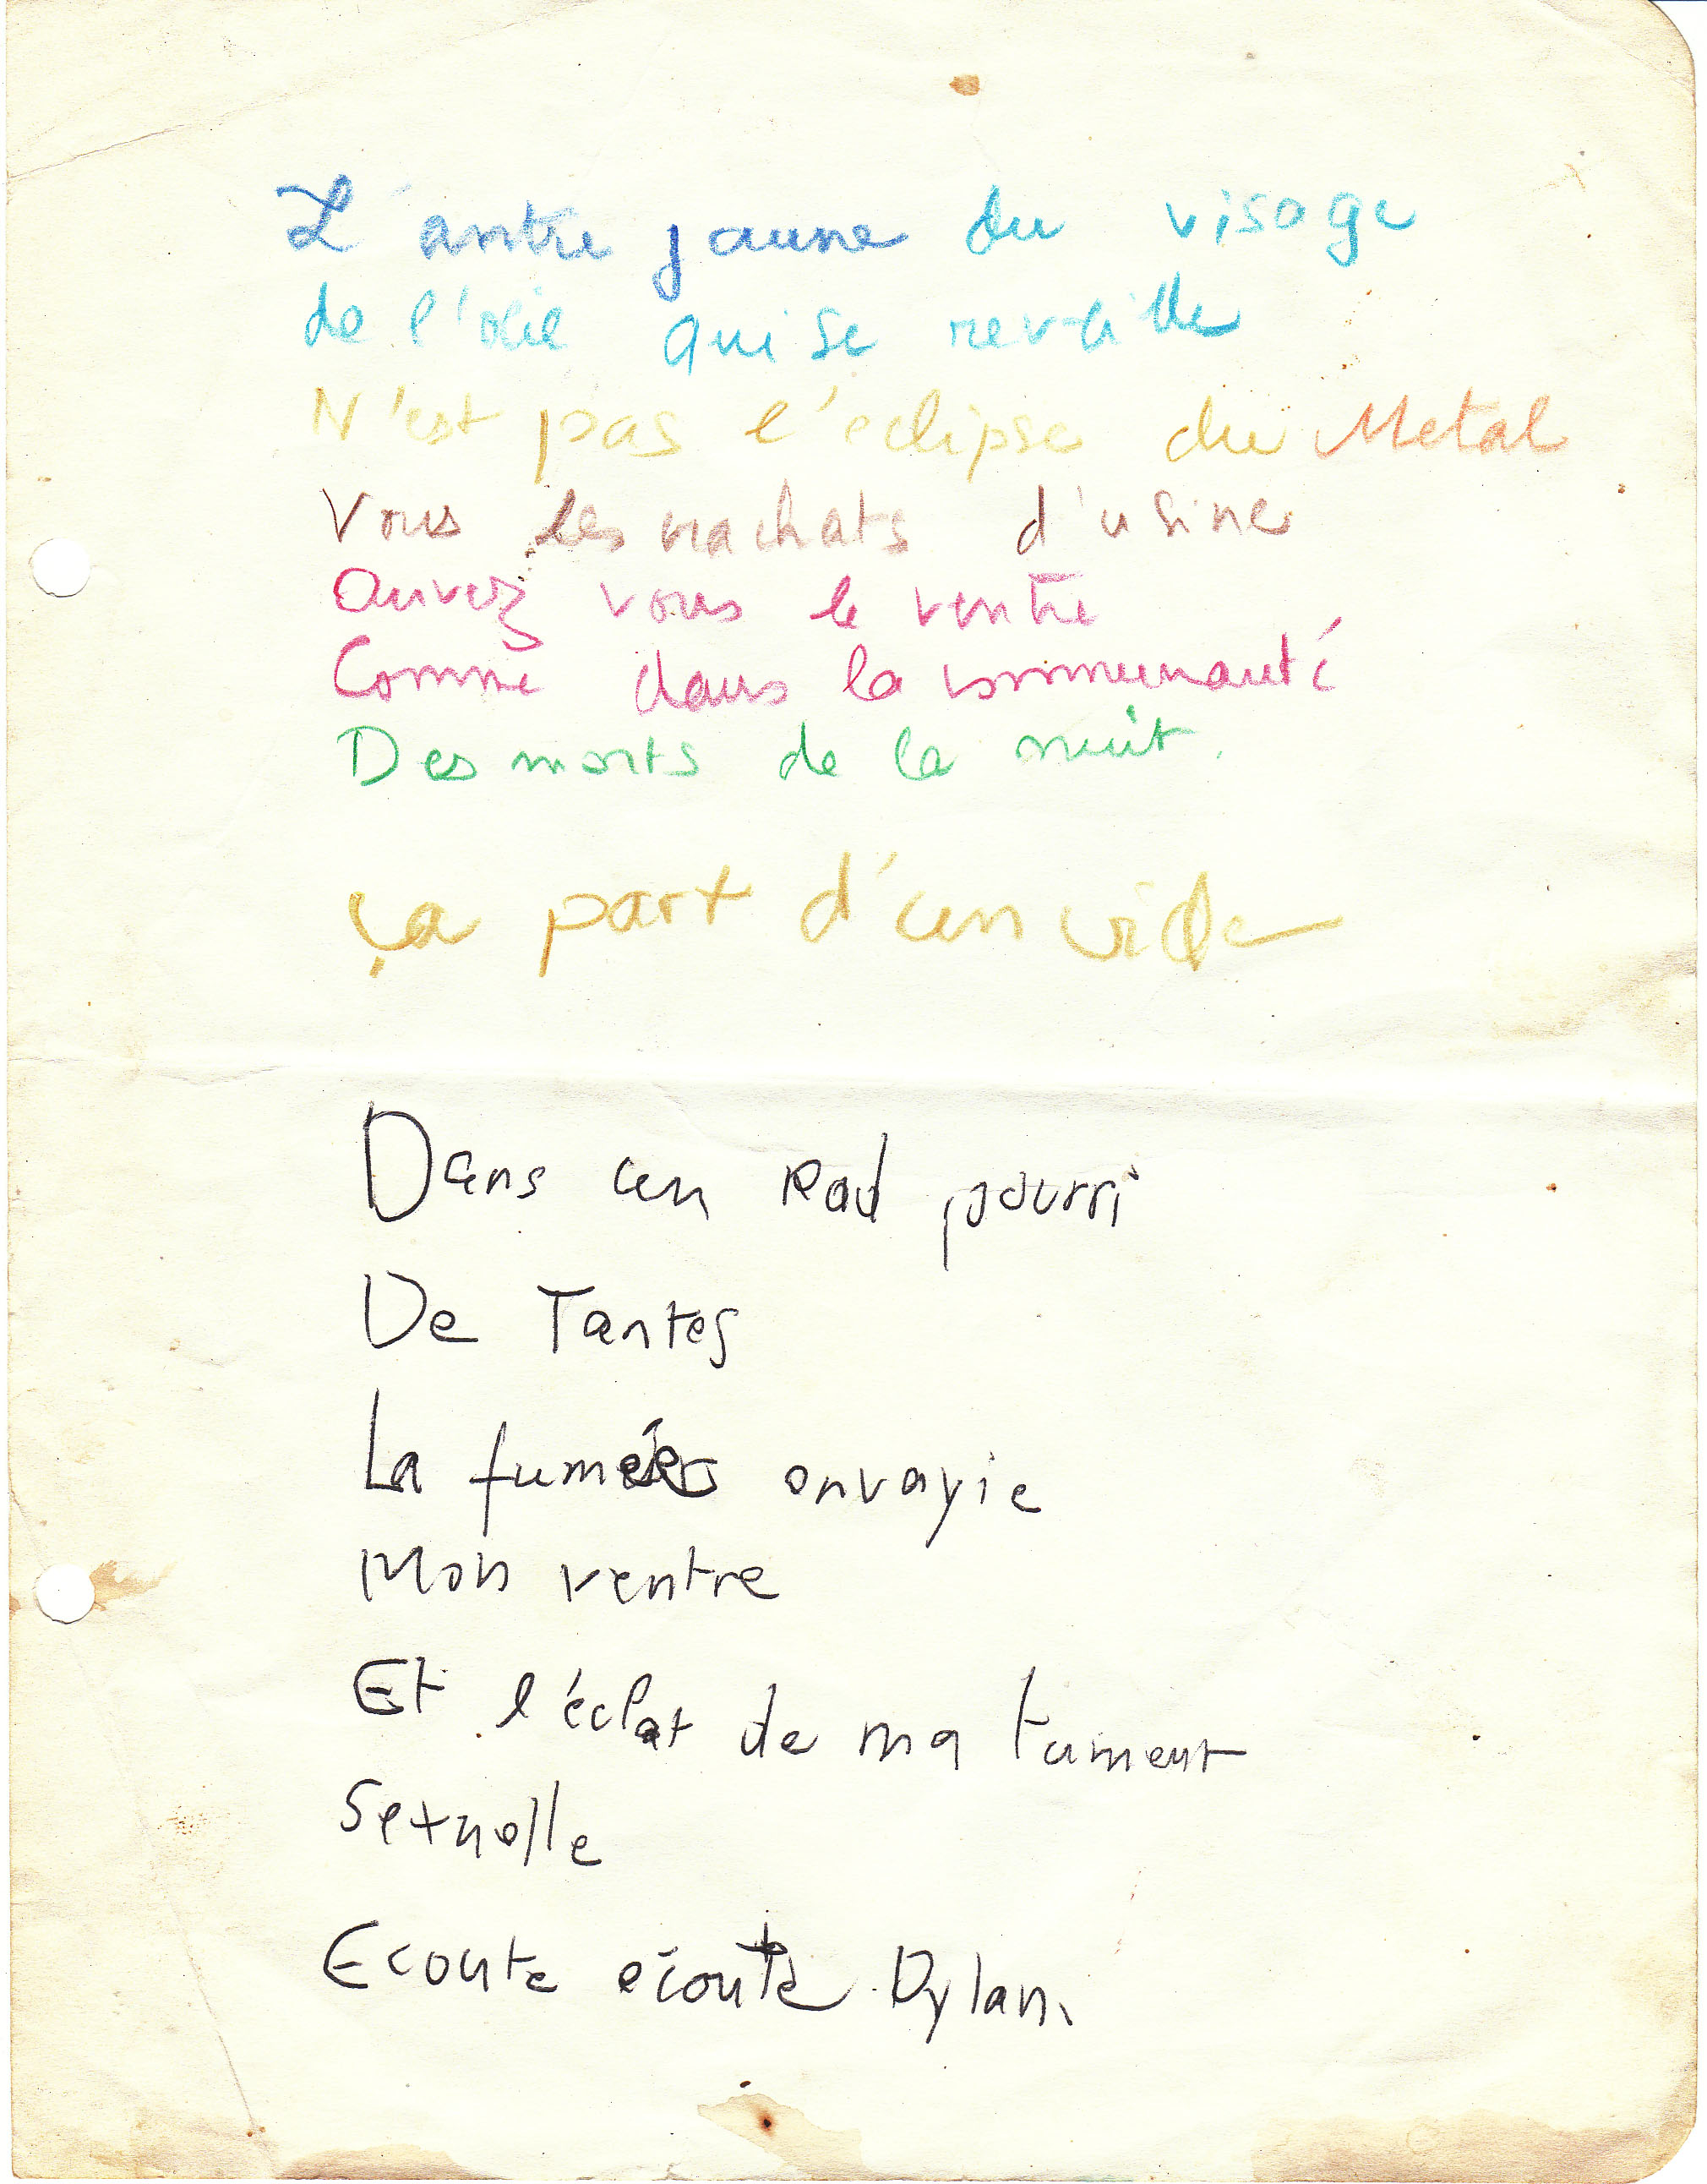 L'antre jaune du visage
de l'oeil qui se reveille
N'est pas l'éclipse du Metal
Vous les rachats d'usines
Ouvrez vous le ventre
Comme dans la communauté
Des morts de la nuit.
ça part d'un vide
Dans un Rad pourri
De Tantes
La fumées onvayie
Mon ventre
Et l'éclat de ma tumeur
Sexuelle
Ecoute écoute Dylan.